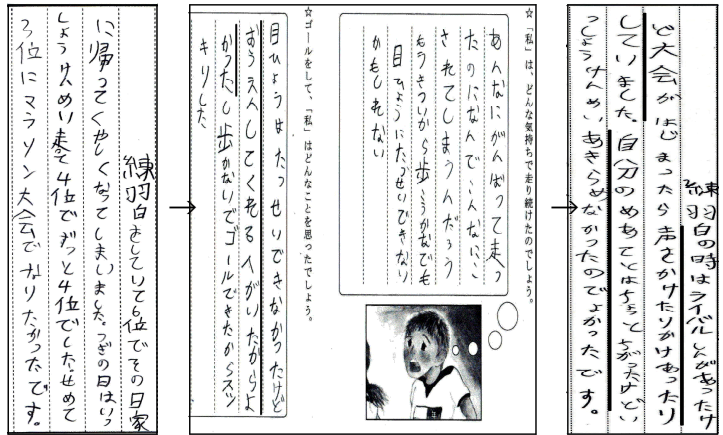 練習をしていて6位でその日家
に帰ってくやしくなってしまいました。つぎの日はいっ
しょうけんめい走って4位でずっと4位でした。せめて
3位にマラソン大会でなりたかったです。
☆「私」は、どんな気持ちで走り続けたのでしょう。
あんなにがんばって走っ
たのになんでこんなにこ
されてしまうんだろう
もうきついから歩こうかなでも
目ひょうにたっせいできない
かもしれない
☆ゴールをして、「私」はどんなことを思ったでしょう。
目ひょうはたっせいできなかったけど
おうえんしてくれる人がいたからよ
かったし歩かないでゴールできたからスッ
キリした、
練習の時はライバルしんがあったけ
ど大会がはじまったら声をかけたりかけあったり
していました。自分のめあてとはちょっとちがったけどい
っしょうけんめいあきらめなかったのでよかったです。